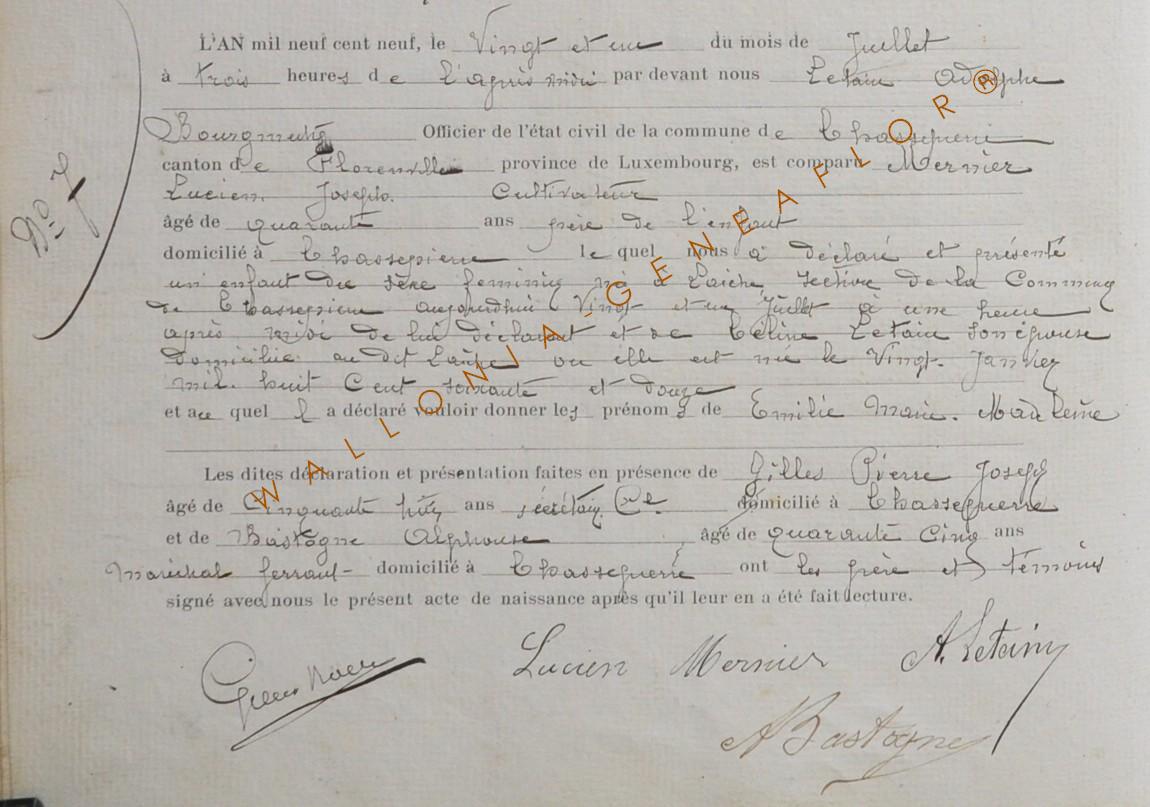 L'AN mil neuf cent neuf, le Vingt et un du mois de Juillet
à trois heures de l'après midi par devant nous Letain Adolphe
Bourgmestre Officier de l'état civil de la commune de Chassepierre
canton de Florenville province de Luxembourg, est comparu Mernier
Lucien Joseph. Cultivateur
âgé de quarante ans père de l'enfant
domicilié à Chassepierre le quel nous a déclaré et présenté
un enfant du sèxe feminin né à Laiche section de la Commune
de Chassepierre aujourdhui Vingt et un Juillet à une heure
après midi de lui déclarant et de Céline Letain son épouse
domiciliée au dit Laiche ou elle est née le Vingt Janvier
mil huit Cent soixante et douze
et auquel il a déclaré vouloir donner les prénoms de Emilie Marie. Madeleine
Les dites déclaration et présentation faites en présence de Gilles Pierre Joseph
âgé de Cinquante huit ans secrétaire Cal domicilié à Chassepierre
et de Bastogne Alphonse âgé de quarante Cinq ans
Maréchal ferrant domicilié à Chassepierre ont les père et témoins
signé avec nous le présent acte de naissance après qu'il leur en a été fait lecture.
Lucien Mernier A. Letain
A Bastogne
No 7
WALLONIA-GENEAFLOR®